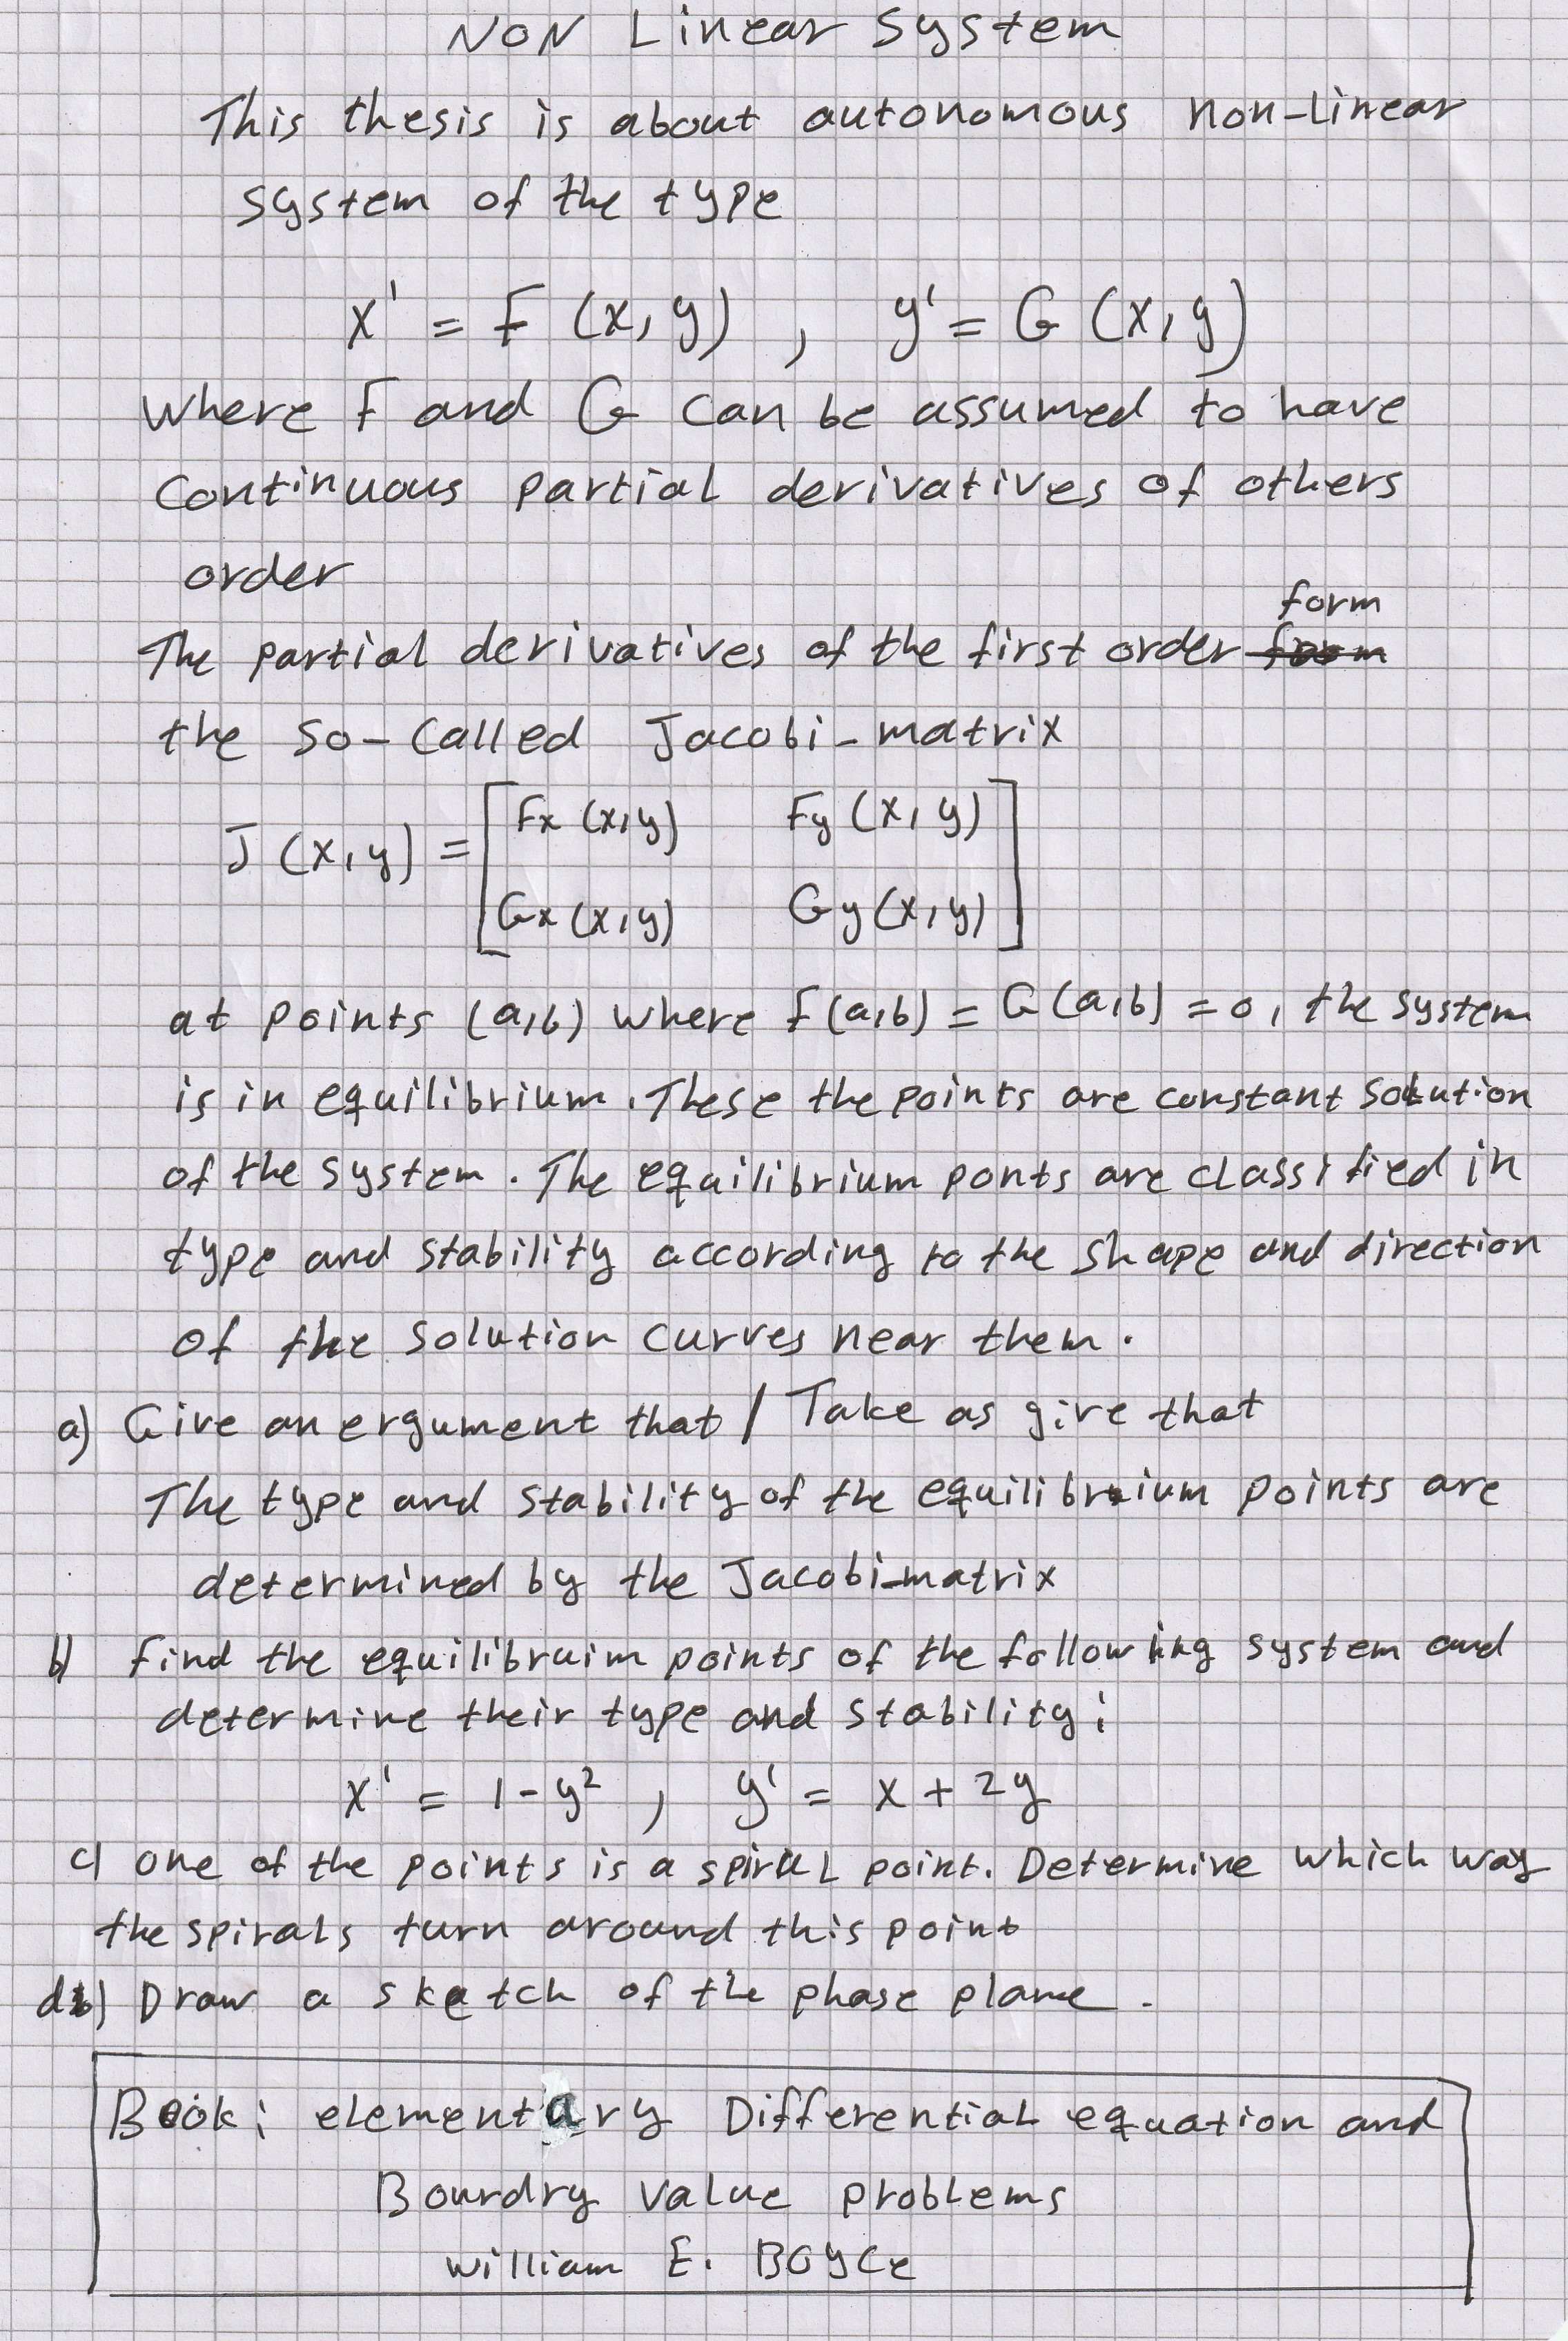 NON Linear System
This thesis is about autonomous non-linear
system of the type
x' = F (x, y) , y' = G (x, y)
where F and G can be assumed to have
continuous partial derivatives of others
order
form
The partial derivatives of the first order
the so-called Jacobi-matrix
J (x, y) = [ Fx (x,y) Fy (x, y) ]
[ Gx (x,y) Gy (x, y) ]
at points (a,b) where f(a,b) = G(a,b) = 0, the system
is in equilibrium. These the points are constant solution
of the system. The equailibrium ponts are classified in
type and stability according to the shape and direction
of the solution curves near them.
a) Give an ergument that / Take as give that
The type and stability of the equilibrium points are
determined by the Jacobi-matrix
b) find the equilibruim points of the following system and
determine their type and stability:
x' = 1 - y² , y' = x + 2y
c) one of the points is a spiral point. Determine which way
the spirals turn around this point
d) Draw a sketch of the phase plane.
Book: elementary Differential equation and
Boundry value problems
william E. BOyce